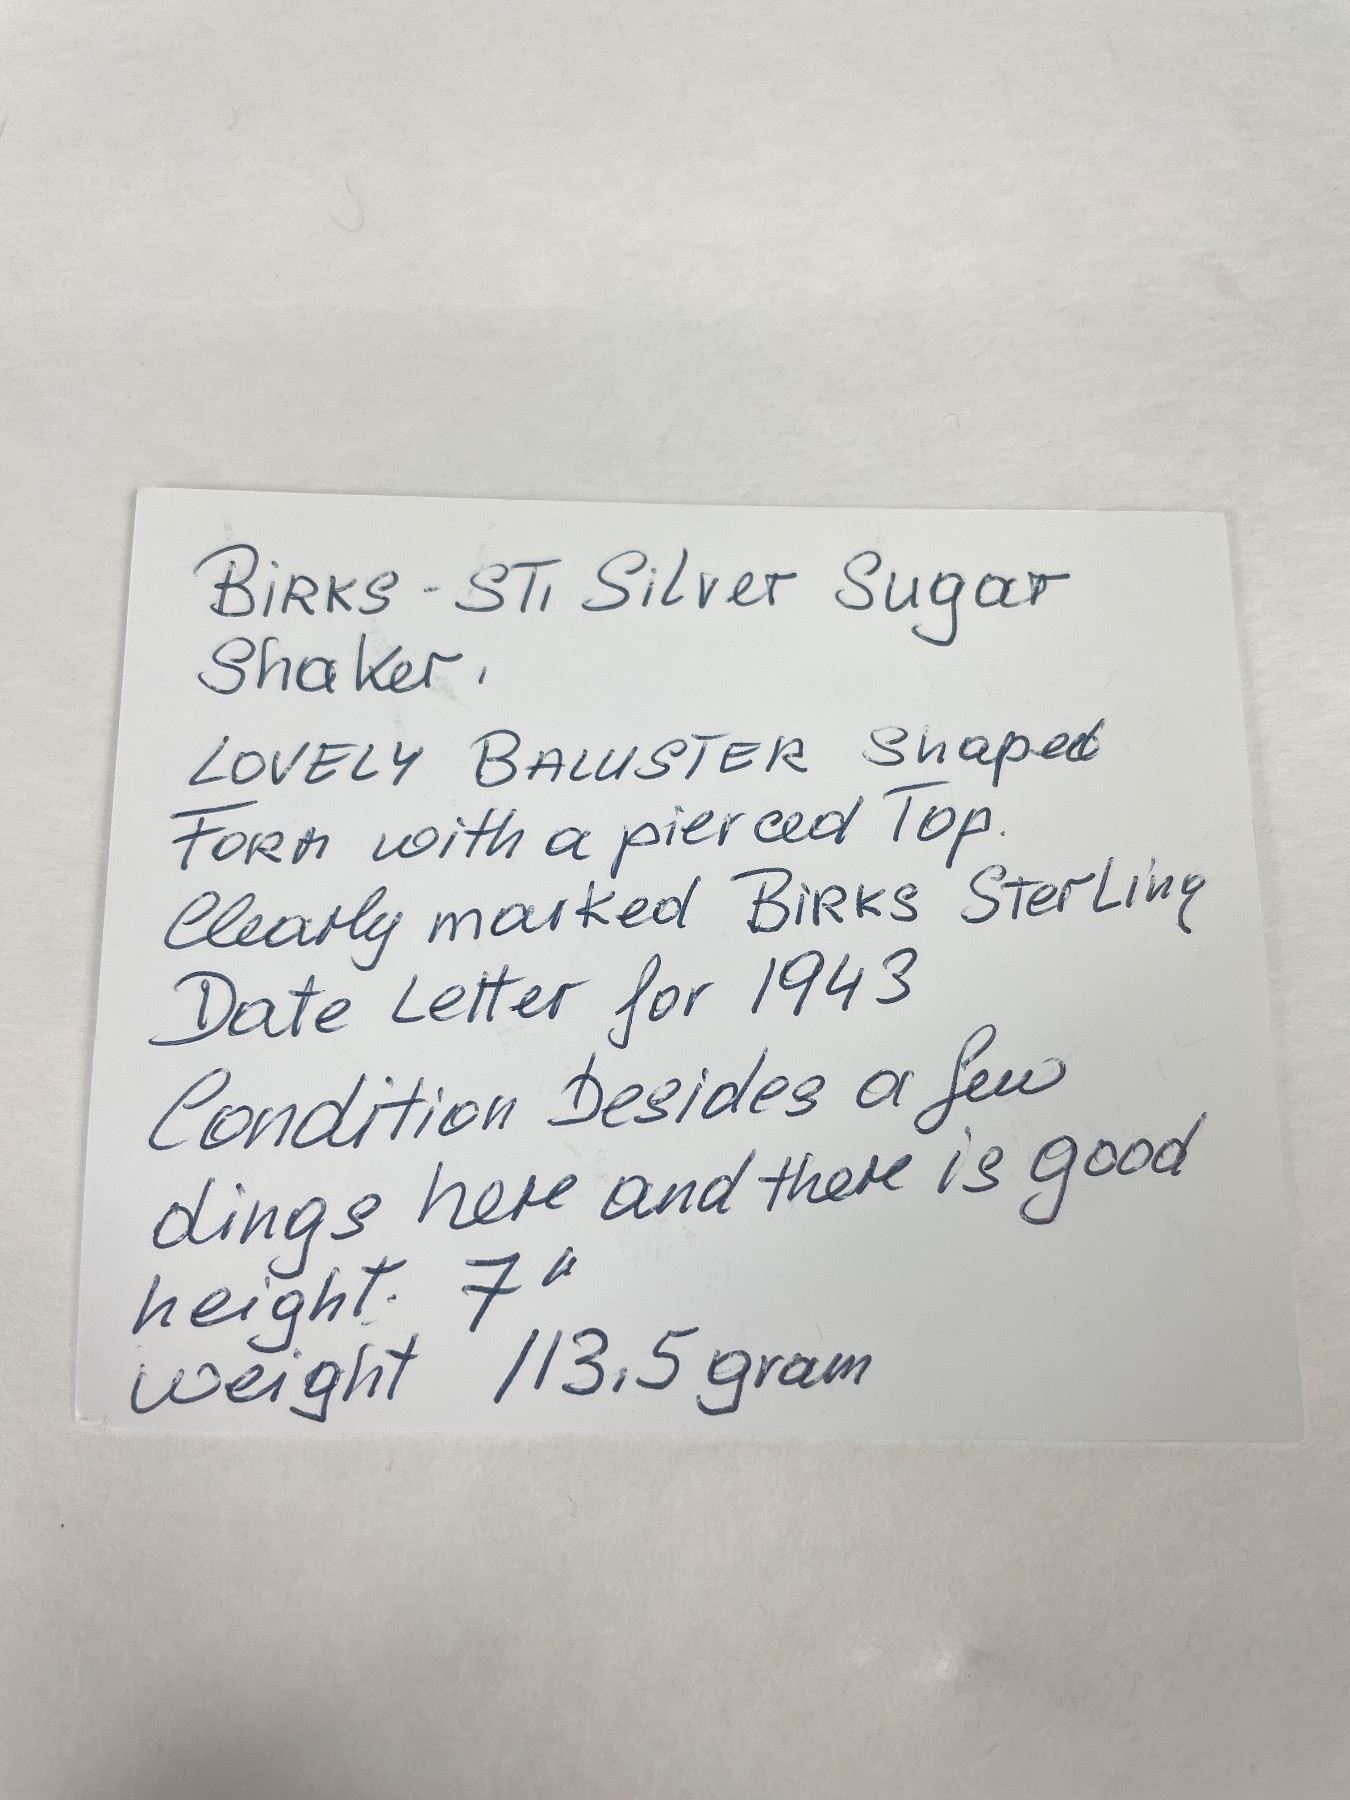 BIRKS - ST. Silver Sugar
Shaker.
LOVELY BALUSTER shaped
FORM with a pierced Top.
Clearly marked BIRKS Sterling
Date Letter for 1943
Condition Besides a few
dings here and there is good
height. 7"
weight 113.5 gram